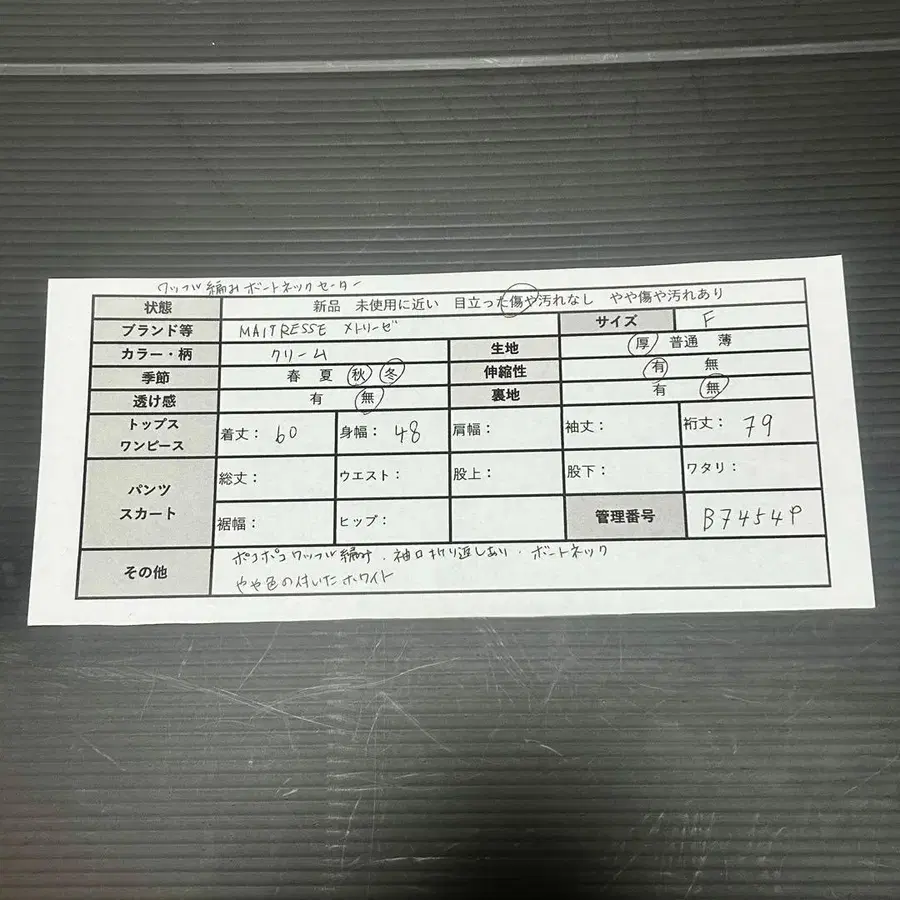 ワッフル編みボートネックセーター
状態 新品 未使用に近い 目立った傷や汚れなし やや傷や汚れあり
ブランド等 MAITRESSE メトリーゼ サイズ F
カラー・柄 クリーム 生地 厚 普通 薄
季節 春 夏 秋 冬 伸縮性 有 無
透け感 有 無 裏地 有 無
トップス
ワンピース
着丈: 60 身幅: 48 肩幅: 袖丈: 裄丈: 79
パンツ
スカート
総丈: ウエスト: 股上: 股下: ワタリ:
裾幅: ヒップ: 管理番号 B7454P
その他
ポコポコワッフル編み.袖口折り返しあり.ボートネック
やや色の付いたホワイト